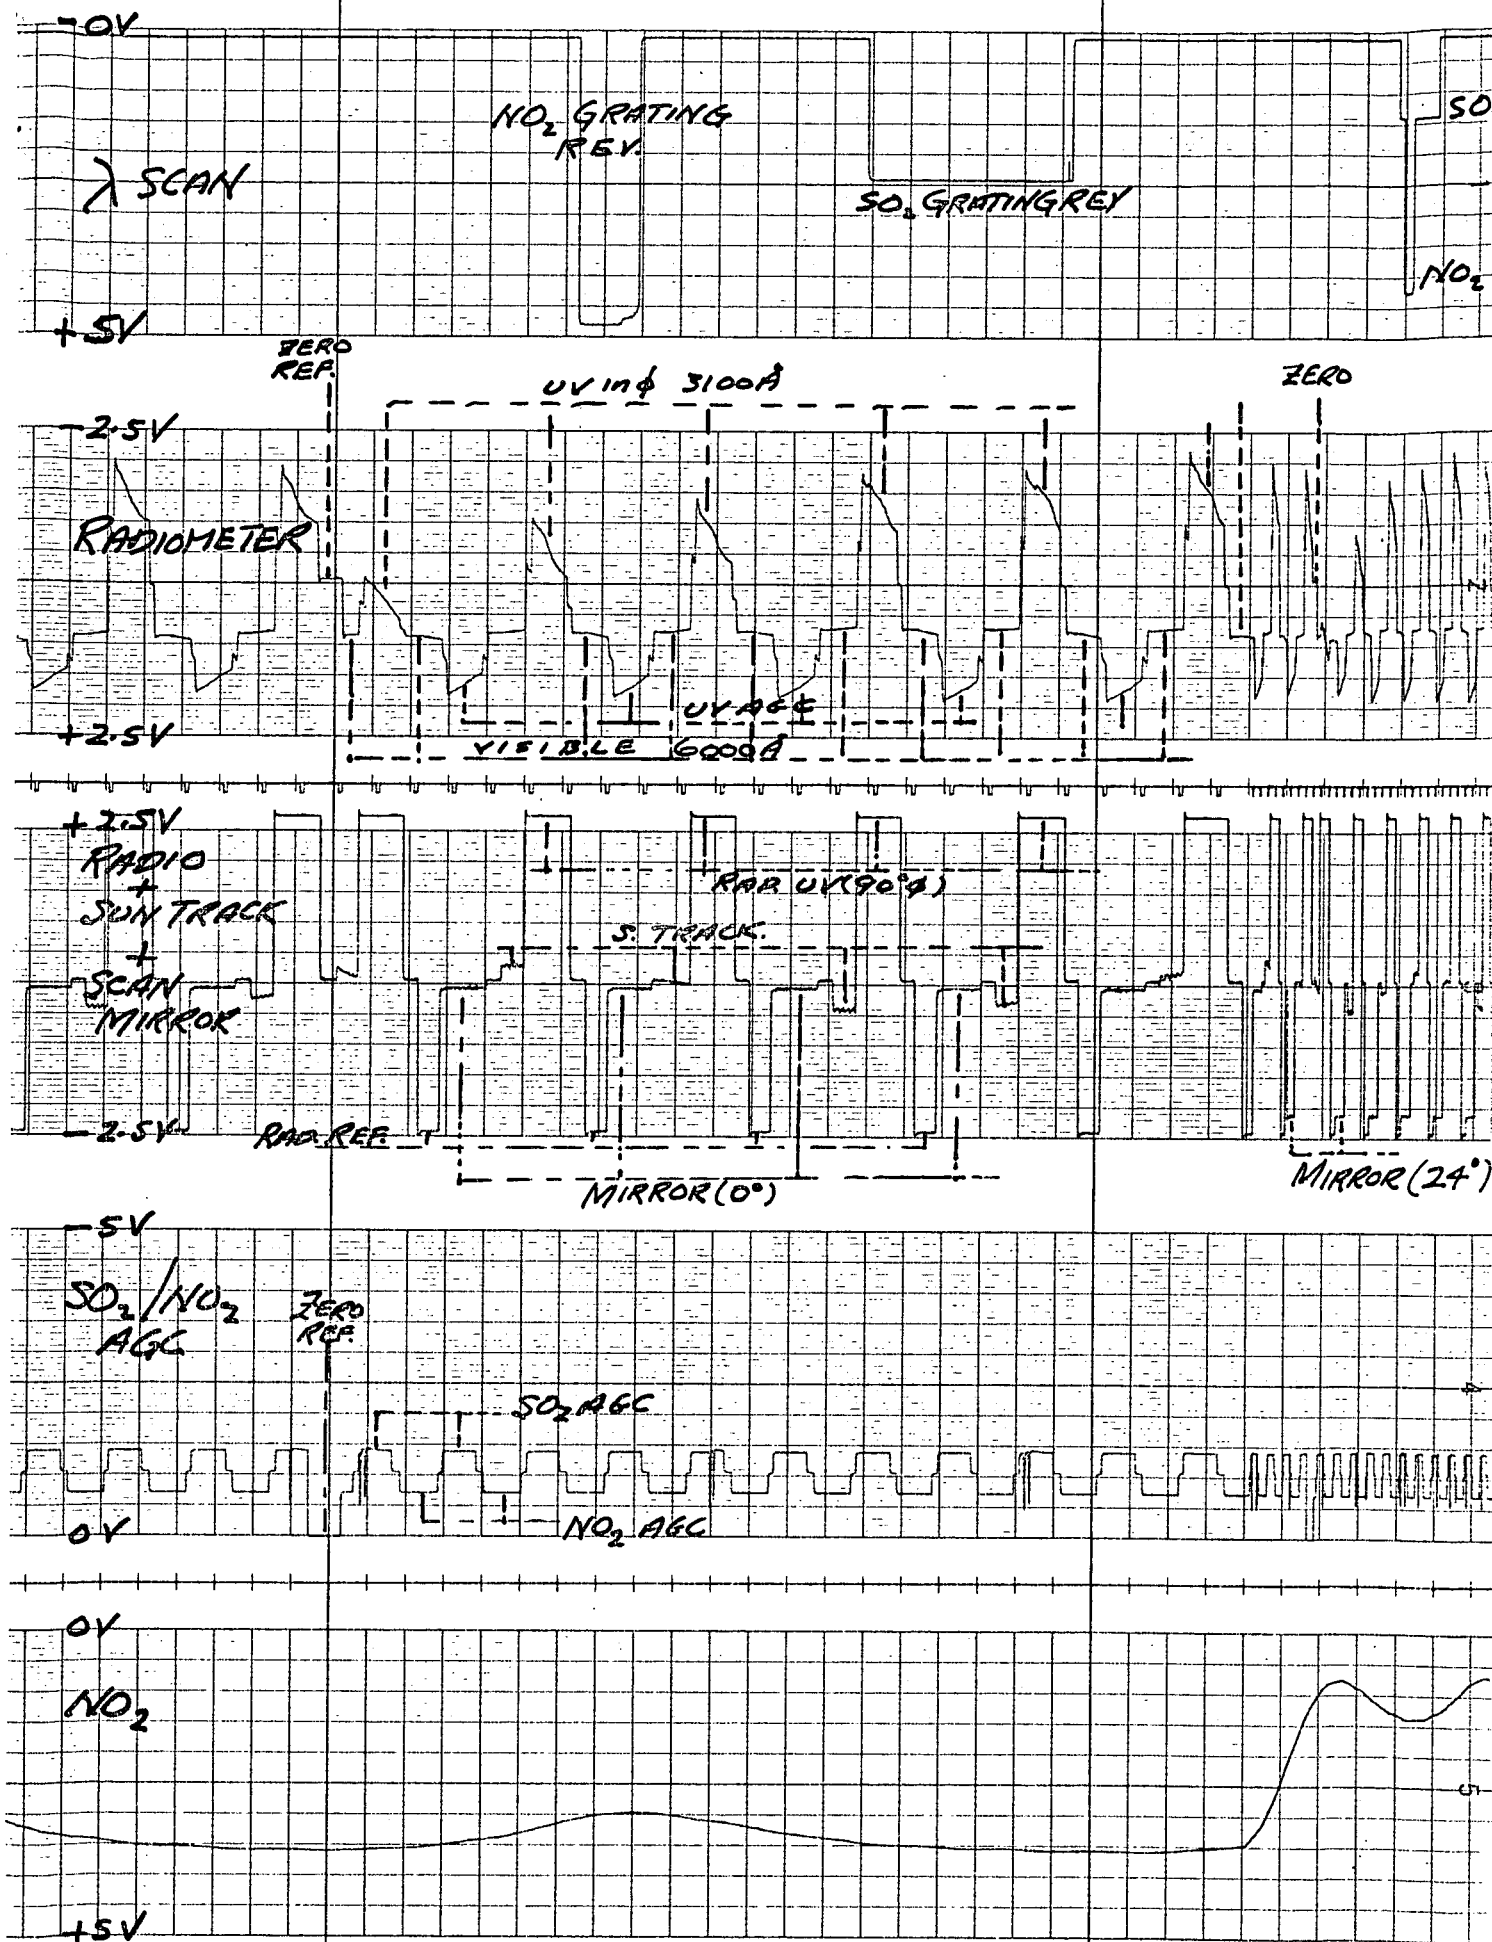 -0V
NO₂ GRATING
REV.
SO
λ SCAN
SO₂ GRATING REV
NO₂
+5V
ZERO
REF.
UV in ϕ 3100Å
ZERO
-2.5V
RADIOMETER
2
UV AGC
+2.5V
VISIBLE 6000Å
+2.5V
RADIO
+
SUN TRACK
+
SCAN
MIRROR
RAD. UV (90°ϕ)
S. TRACK.
3
-2.5V
RAD. REF.
MIRROR (0°)
MIRROR (24°)
-5V
SO₂/NO₂
AGC
ZERO
REF.
4
SO₂ AGC
0V
NO₂ AGC
0V
NO₂
5
+5V